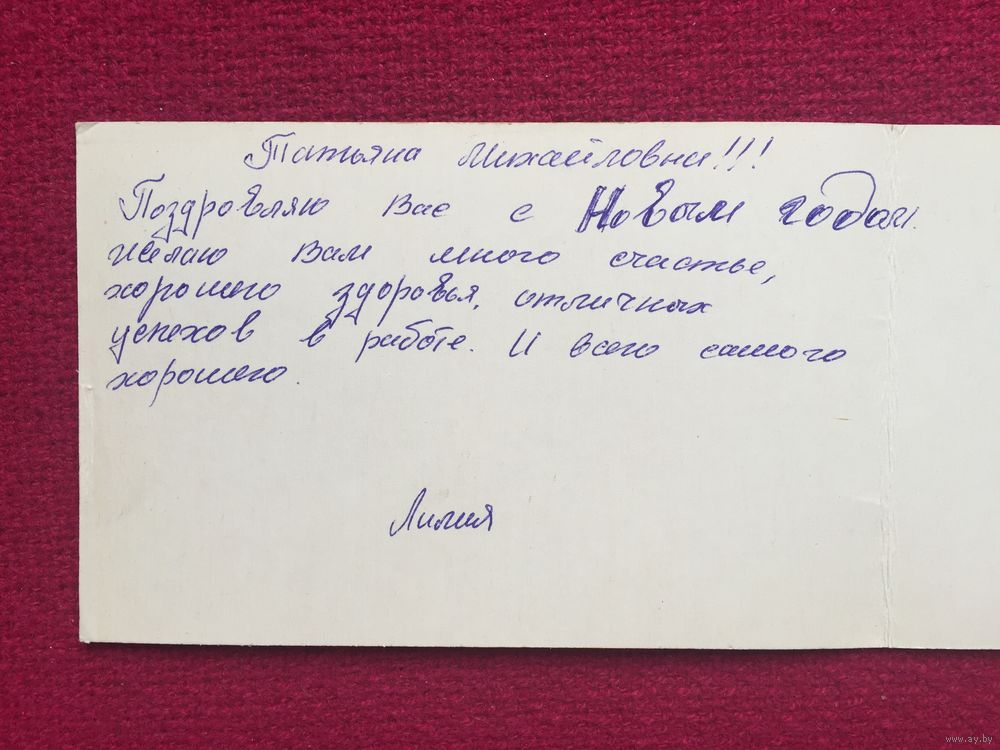 Татьяна Михайловна!!!
Поздровляю Вас с Новым годом.
желаю Вам много счастье,
хорошего здоровья, отличных
успехов в работе. И всего самого
хорошего.
Лилия
www.ay.by